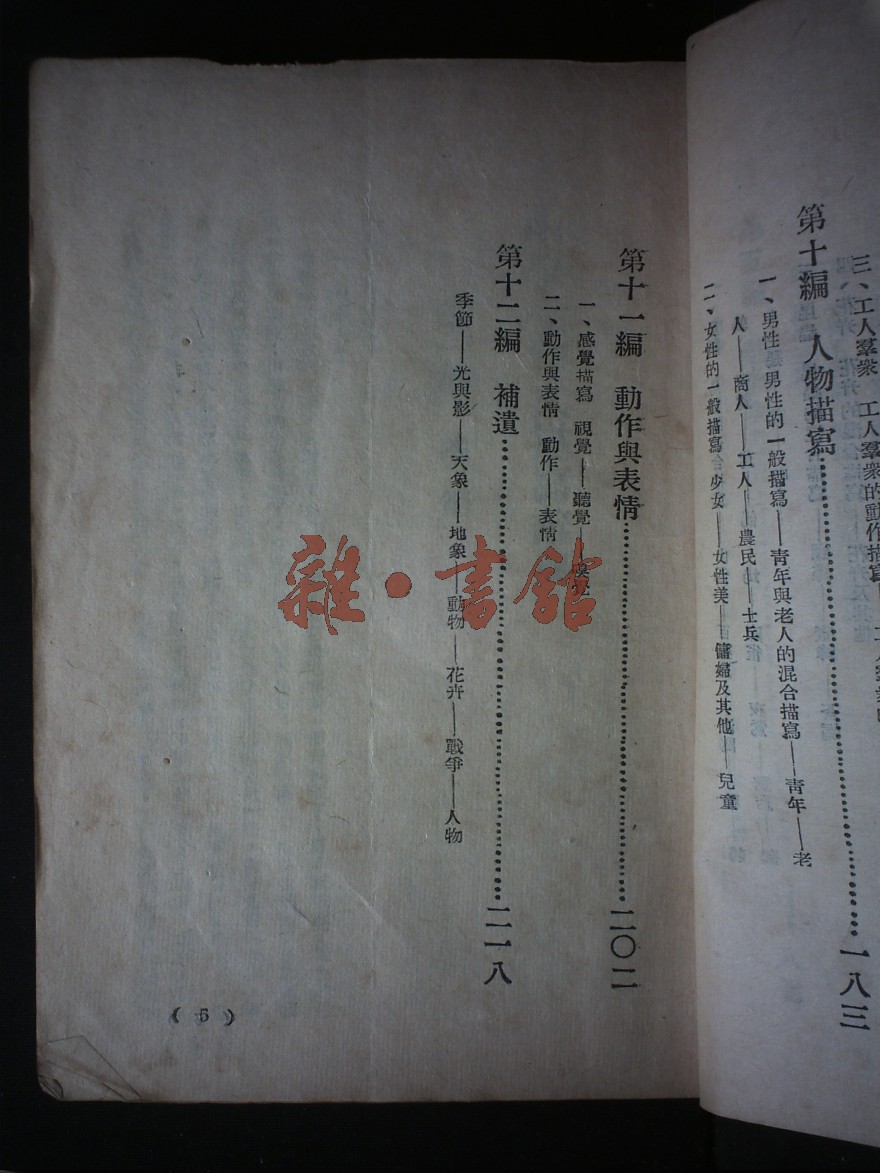 三、工人羣衆　工人羣衆的動作描寫
第十編　人物描寫……………………一八三
一、男性　男性的一般描寫——青年與老人的混合描寫——青年——老
人——商人——工人——農民——士兵
二、女性的一般描寫　少女——女性美——傭婦及其他——兒童
第十一編　動作與表情……………………二〇二
一、感覺描寫　視覺——聽覺——
二、動作與表情　動作——表情
第十二編　補遺……………………二一八
季節——光與影——天象——地象——動物——花卉——戰爭——人物
( 5 )
雜·書館